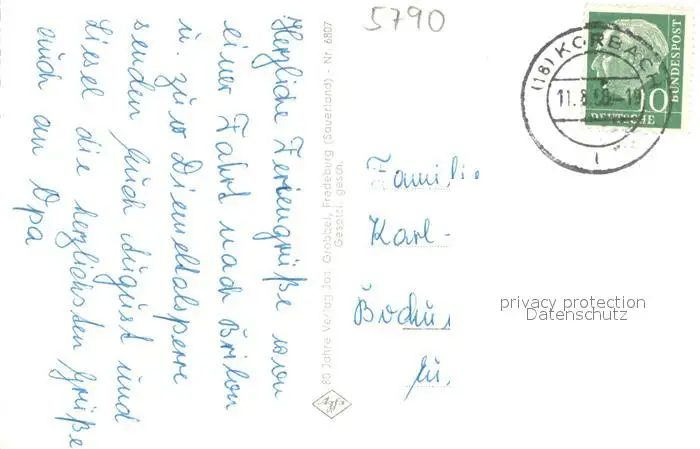 Herzliche Feriengrüße von
einer Fahrt nach Brilon
u. zur Diemeltalsperre
senden Euch August und
Liesel die herzlichsten Grüße
auch an Opa
80 Jahre Verlag Jos. Grobbel, Fredeburg (Sauerland) - Nr. 6807
Gesetzl. gesch.
Agfa
5790
(16) KORBACH
11.8.58-19
1
10
DEUTSCHE
BUNDESPOST
Familie
Karl-
Bochu
privacy protection
Datenschutz